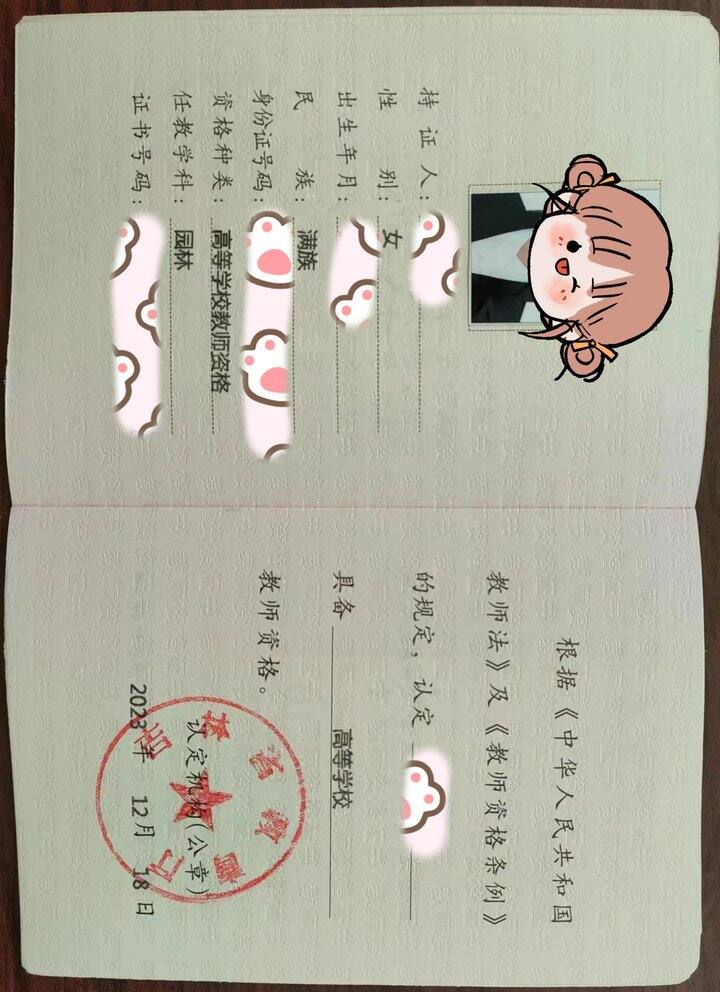 持 证 人：
性 别：女
出生年月：
民 族：满族
身份证号码：
资格种类：高等学校教师资格
任教学科：园林
证书号码：
根据《中华人民共和国
教师法》及《教师资格条例》
的规定，认定
具备 高等学校
教师资格。
认定机构（公章）
2023 年 12 月 18 日